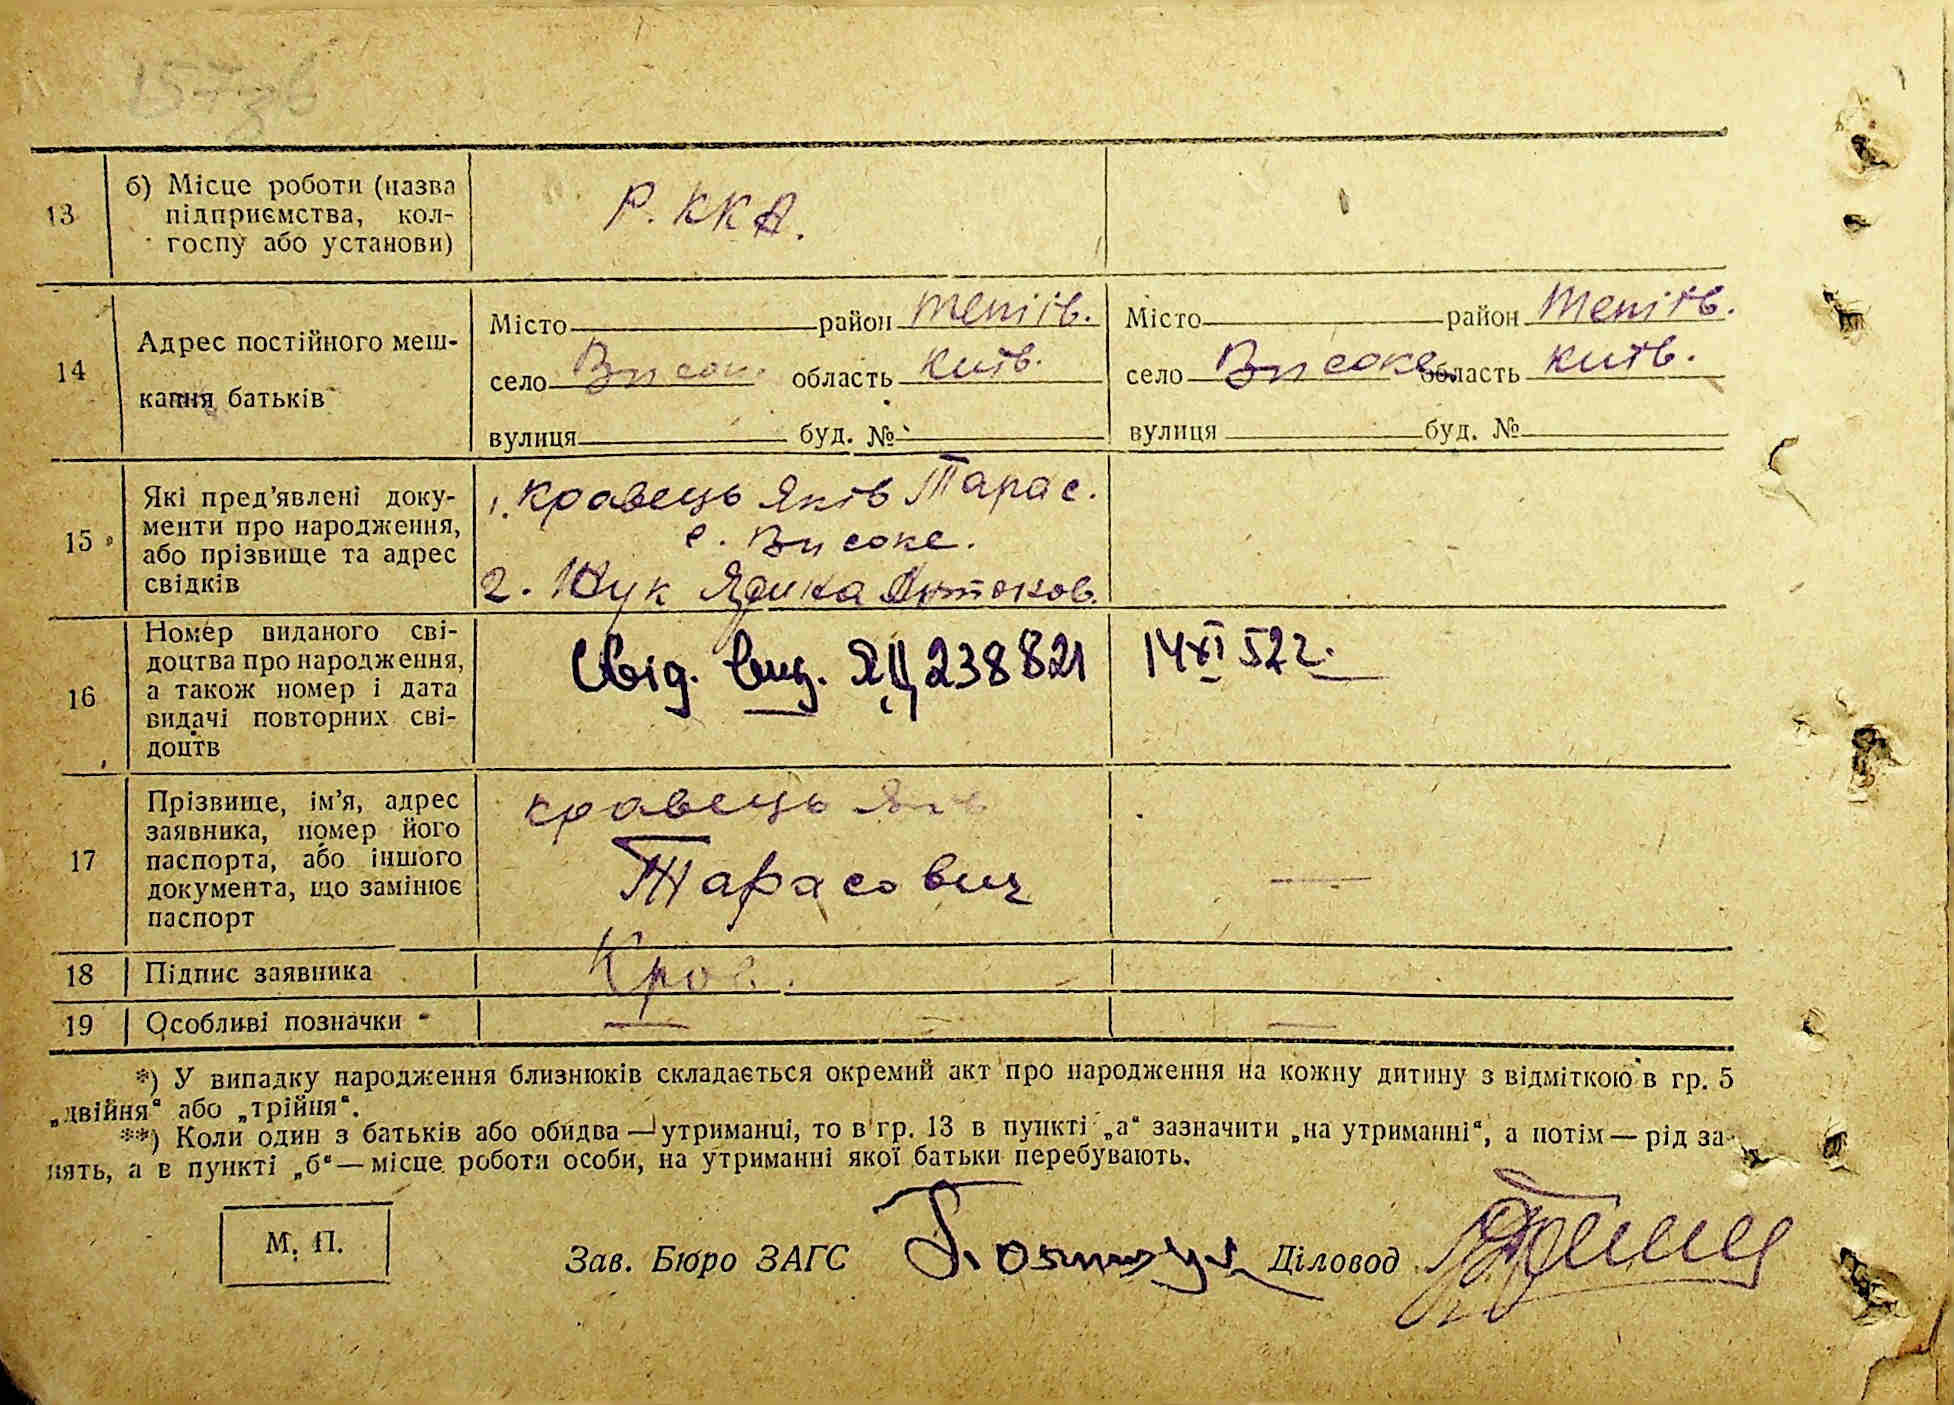 157зв
13
б) Місце роботи (назва
підприємства, кол-
госпу або установи)
Р. ККА.
14
Адрес постійного меш-
кання батьків
Місто район Тетіїв.
село Високе. область Київ.
вулиця буд. №
Місто район Тетіїв.
село Високе. область Київ.
вулиця буд. №
15
Які пред'явлені доку-
менти про народження,
або прізвище та адрес
свідків
1. Кравець Яків Тарас.
с. Високе.
2. Жук
16
Номер виданого сві-
доцтва про народження,
а також номер і дата
видачі повторних сві-
доцтв
Свід. вид. ЯЦ 238821
14 XI 52 г.
17
Прізвище, ім'я, адрес
заявника, номер його
паспорта, або іншого
документа, що замінює
паспорт
Кравець Яків
Тарасович
18
Підпис заявника
Крав.
19
Особливі позначки
*) У випадку народження близнюків складається окремий акт про народження на кожну дитину з відміткою в гр. 5
„двійня“ або „трійня“.
**) Коли один з батьків або обидва — утриманці, то в гр. 13 в пункті „а“ зазначити „на утриманні“, а потім — рід за-
нять, а в пункті „б“ — місце роботи особи, на утриманні якої батьки перебувають.
М. П.
Зав. Бюро ЗАГС
Діловод